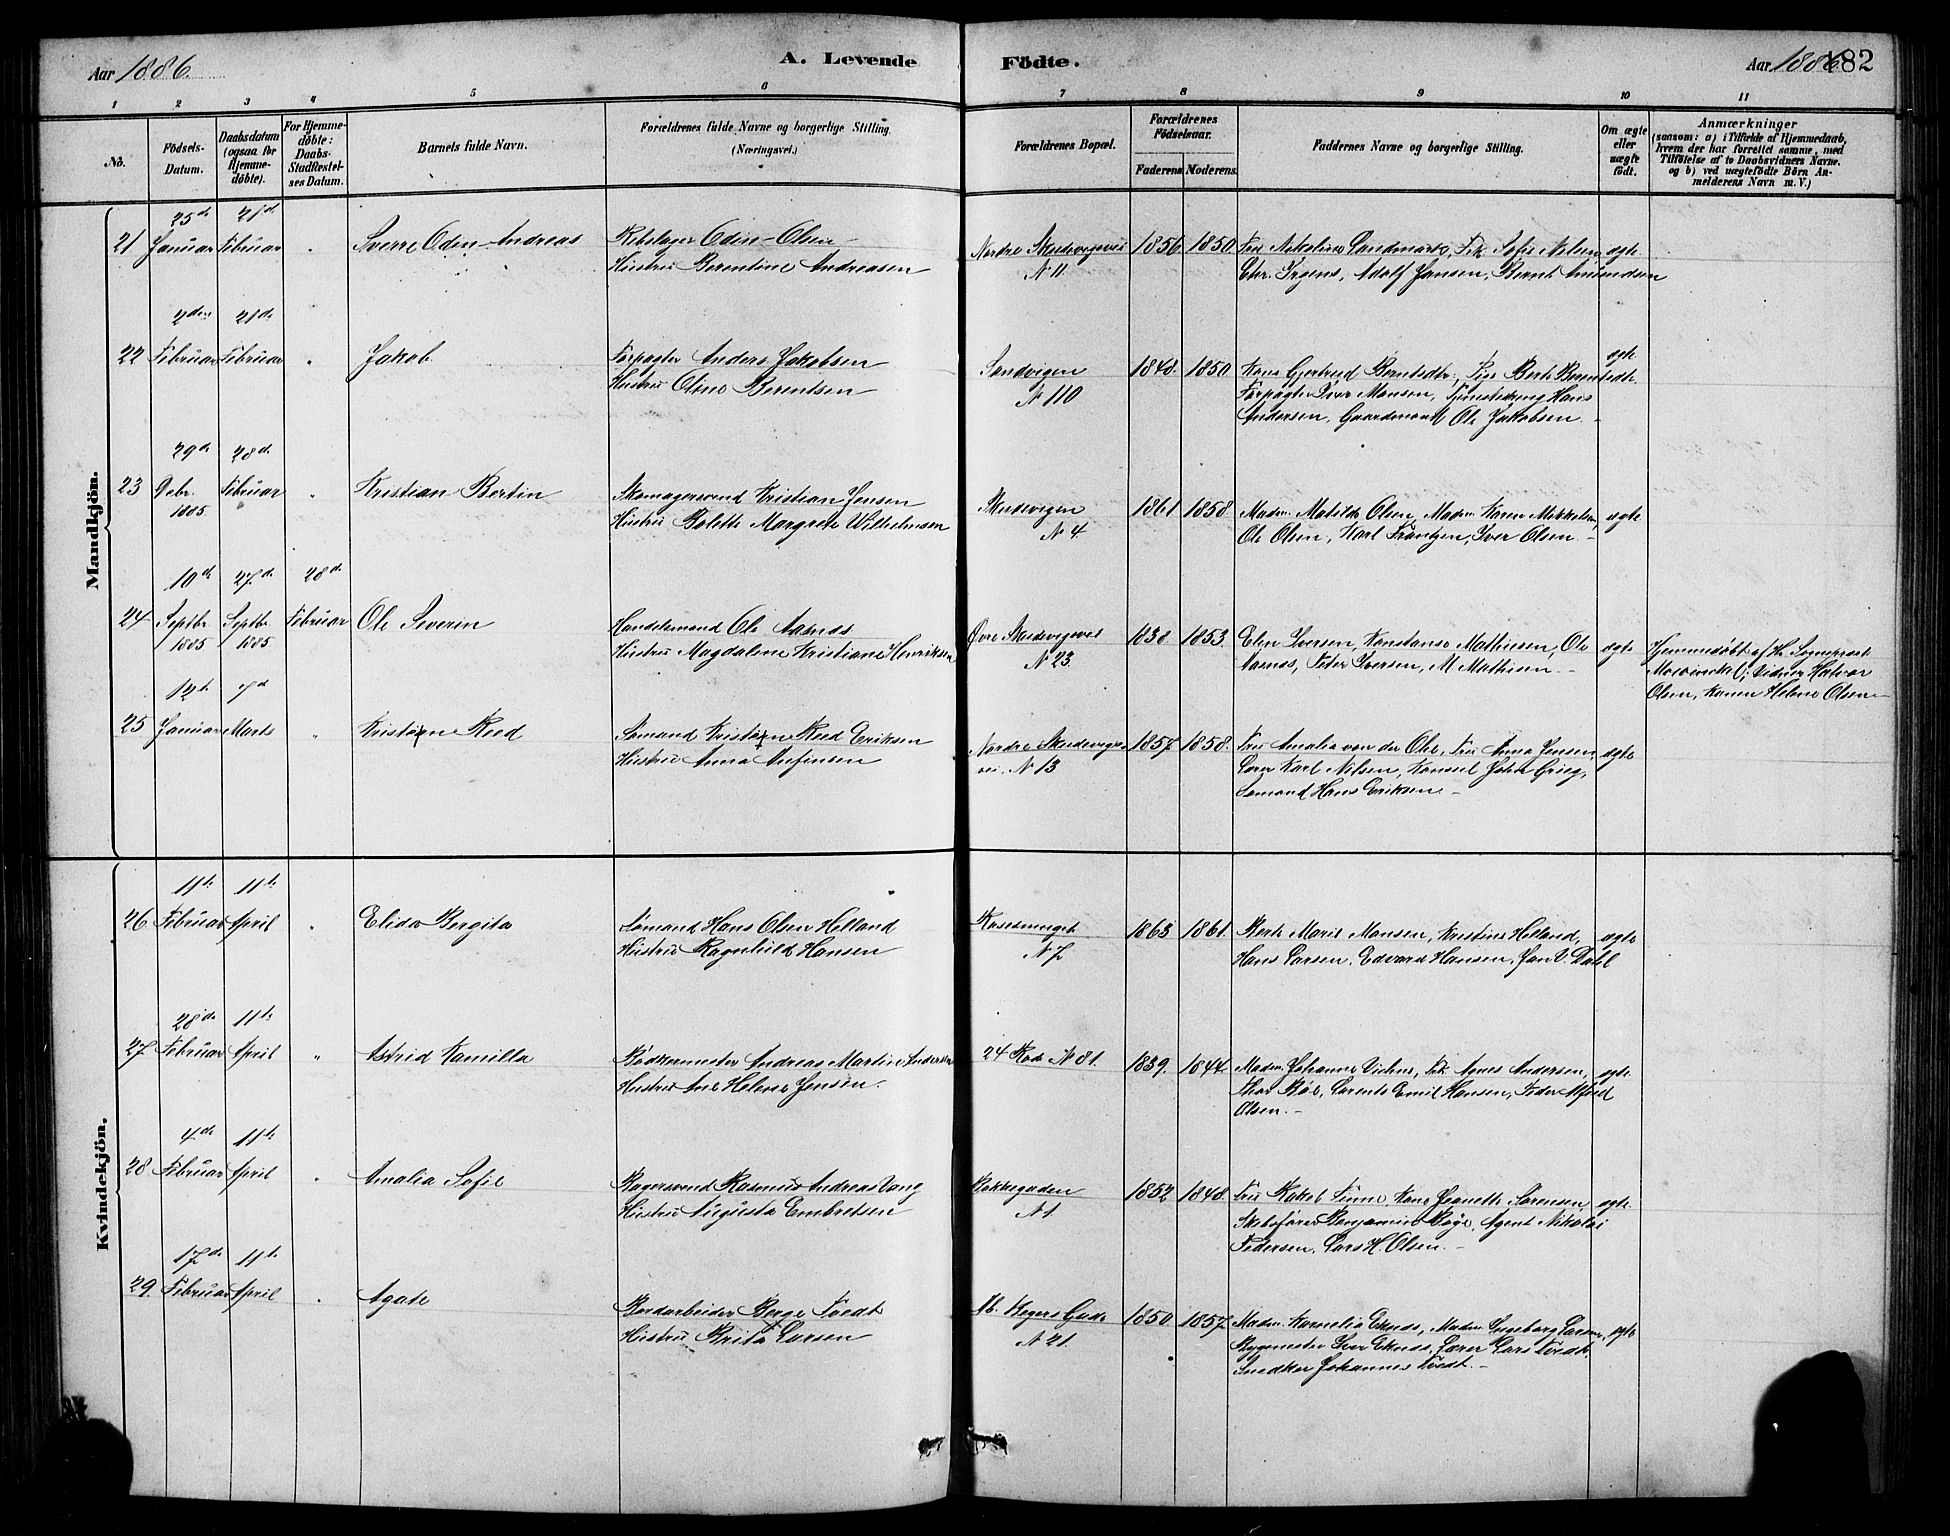 Aar 1886.
A. Levende
Födte.
Aar 1886
182
1 2 3 4 5 6 7 8 9 10 11
No.
Födsels-
Datum.
Daabsdatum
(ogsaa for
Hjemme-
döbte).
For Hjemme-
döbte:
Daabs-
Stadfæstel-
ses Datum.
Barnets fulde Navn.
Forældrenes fulde Navne og borgerlige Stilling.
(Næringsvei.)
Forældrenes Bopæl.
Forældrenes
Födselsaar.
Faderens Moderens.
Faddernes Navne og borgerlige Stilling.
Om ægte
eller
uægte
födt.
Anmærkninger
(saasom: a) i Tilfælde af Hjemmedaab,
hvem der har forrettet samme, med
Tilföielse af to Daabsvidners Navne.
og b) ved uægtefödte Börn An-
melderens Navn m. V.)
Mandkjön.
25de 21de
21 Januar Februar " Sverre Odin Andreas
Rebslager Odin Olsen
Hustru Berentine Andreasen
Nordre Skudevigsvei
N 11
1856 1850
Fru Nikoline Sandmark, Frk. Sofie Nilsen,
Chr. Irgens, Adolf Jansen, Bernt Amundsen
ægte
2den 21de
22 Februar Februar " Jakob
Forpagter Anders Jakobsen
Hustru Oline Berentsen
Sandvigen
N 110
1848 1850
Kone Gjertrud Berntsdtr, Pige Berte Berntsdtr.
Forpagter Iver Monsen, Tjenestedreng Hans
Andersen, Gaardmand Ole Jakobsen.
ægte
29de 28de
23 Debr. Februar " Kristian Bertin
1885
Skomagersvend Kristian Jensen
Hustru Bolette Margrete Wilhelmsen
Skudevigen
N 4
1861 1858
Madm. Matilde Olsen, Madm. Karen Mikkelsen,
Ole Olsen, Karl Frantzen, Iver Olsen.
ægte
10de 27de 28de
24 Septbr. Septbr. Februar Ole Severin
1885 1885
Handelsmand Ole Aasnæs
Hustru Magdalene Kristiane Henriksen
Øvre Skudevigsvei
N 23
1838 1853
Elen Iversen, Konstanse Mathiesen, Ole
Aasnæs, Peder Iversen, M. Mathiesen.
ægte
Hjemmedøbt af Hr. Sogneprest
Vidner Halvor
Olsen, Karen Helene Olsen
12te 7de
25 Januar Marts " Kristian Reed
Sømand Kristian Reed Eriksen
Hustru Anna Anfinsen
Nordre Skudevigs-
vei, N 13
1857 1858
Fru Amalia von der Ohe, Fru Anna Jensen,
Karl Nilsen, Konsul John Grieg,
Sømand Hans Eriksen.
ægte
Kvindekjön.
11te 11te
26 Februar April " Elida Bergita
Sømand Hans Olsen Helland
Hustru Ragnhild Hansen
N 7
1863 1861
Berte Marie Monsen, Kristine Helland,
Hans Larsen, Edvard Hansen, Jan V. Dahl
ægte
28de 11te
27 Februar April " Astrid Kamilla
Bødkermester Andreas Martin Andersen
Hustru Ane Helene Jensen.
24 Rode N 81.
1839 1844
Madm. Johanne Frk. Agnes Andersen,
Thor Bøe, Lorents Emil Hansen, Peder Alfred
Olsen.
ægte
4de 11te
28 Februar April " Amalia Sofie
Bagersvend Rasmus Andreas Vang
Hustru Augusta Embretsen
Bakkegaden
N 1.
1852 1848
Fru Rakel Kone Jeanette Sørensen,
Skibsfører Benjamin Bøge, Agent Nikolai
Pedersen, Lars H. Olsen.
ægte
17de 11te
29. Februar April " Agate
Bordarbeider Børge Tvedt
Hustru Brita Larsen
N 21.
1850 1857
Madm. Kornelia Eknæs, Madm. Ingeborg Larsen,
Bygmester Iver Eknæs, Lærer Lars Tvedt,
Snedker Johannes Tvedt.
ægte